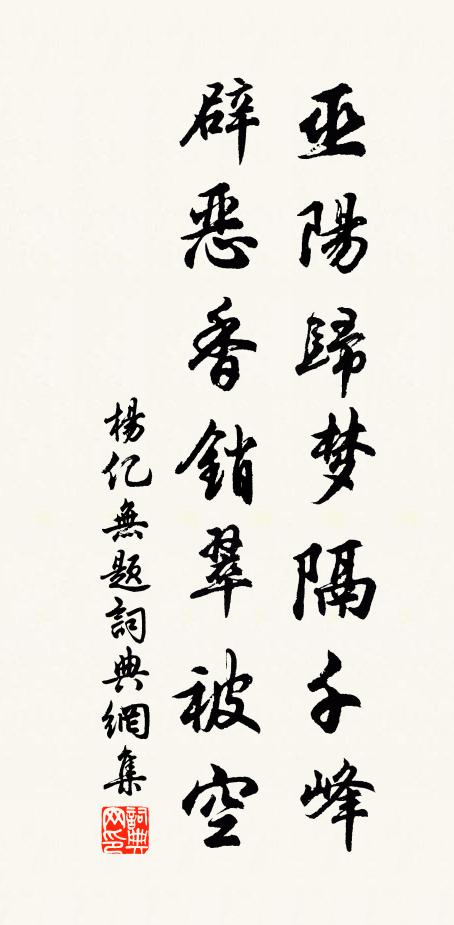 巫陽歸梦隔千峰
辟恶香銷翠被空
楊亿無题詞典網集
詞典网印